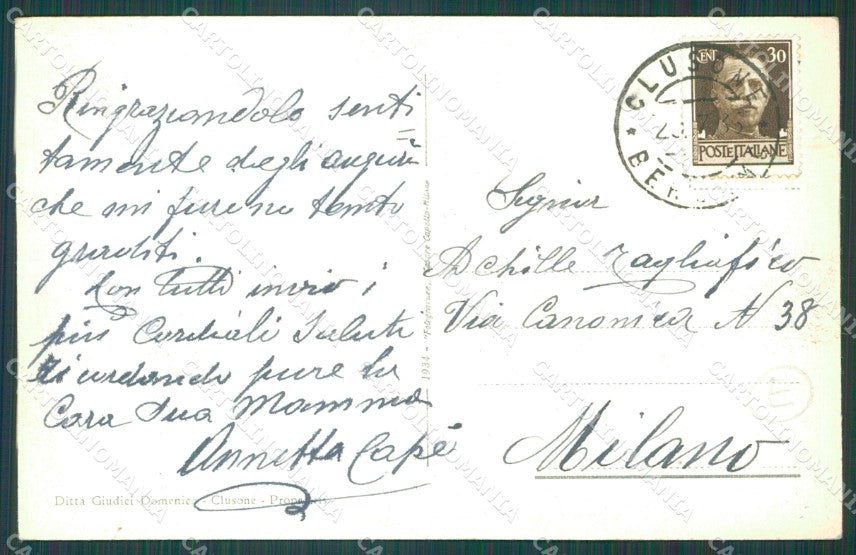 Ringraziandolo senti
tamente degli auguri
che mi furono tanto
graditi.
Con tutti invio i
più Cordiali Saluti
ricordando pure la
Cara Sua Mamma
Annetta Capé
Ditta Giudici Domenico - Clusone - Propr
1934 -
CLUSONE
BER
CENT 30
POSTE ITALIANE
Signor
Achille Tagliafico
Via Canonica N 38
Milano
CARTOLINOMANIA